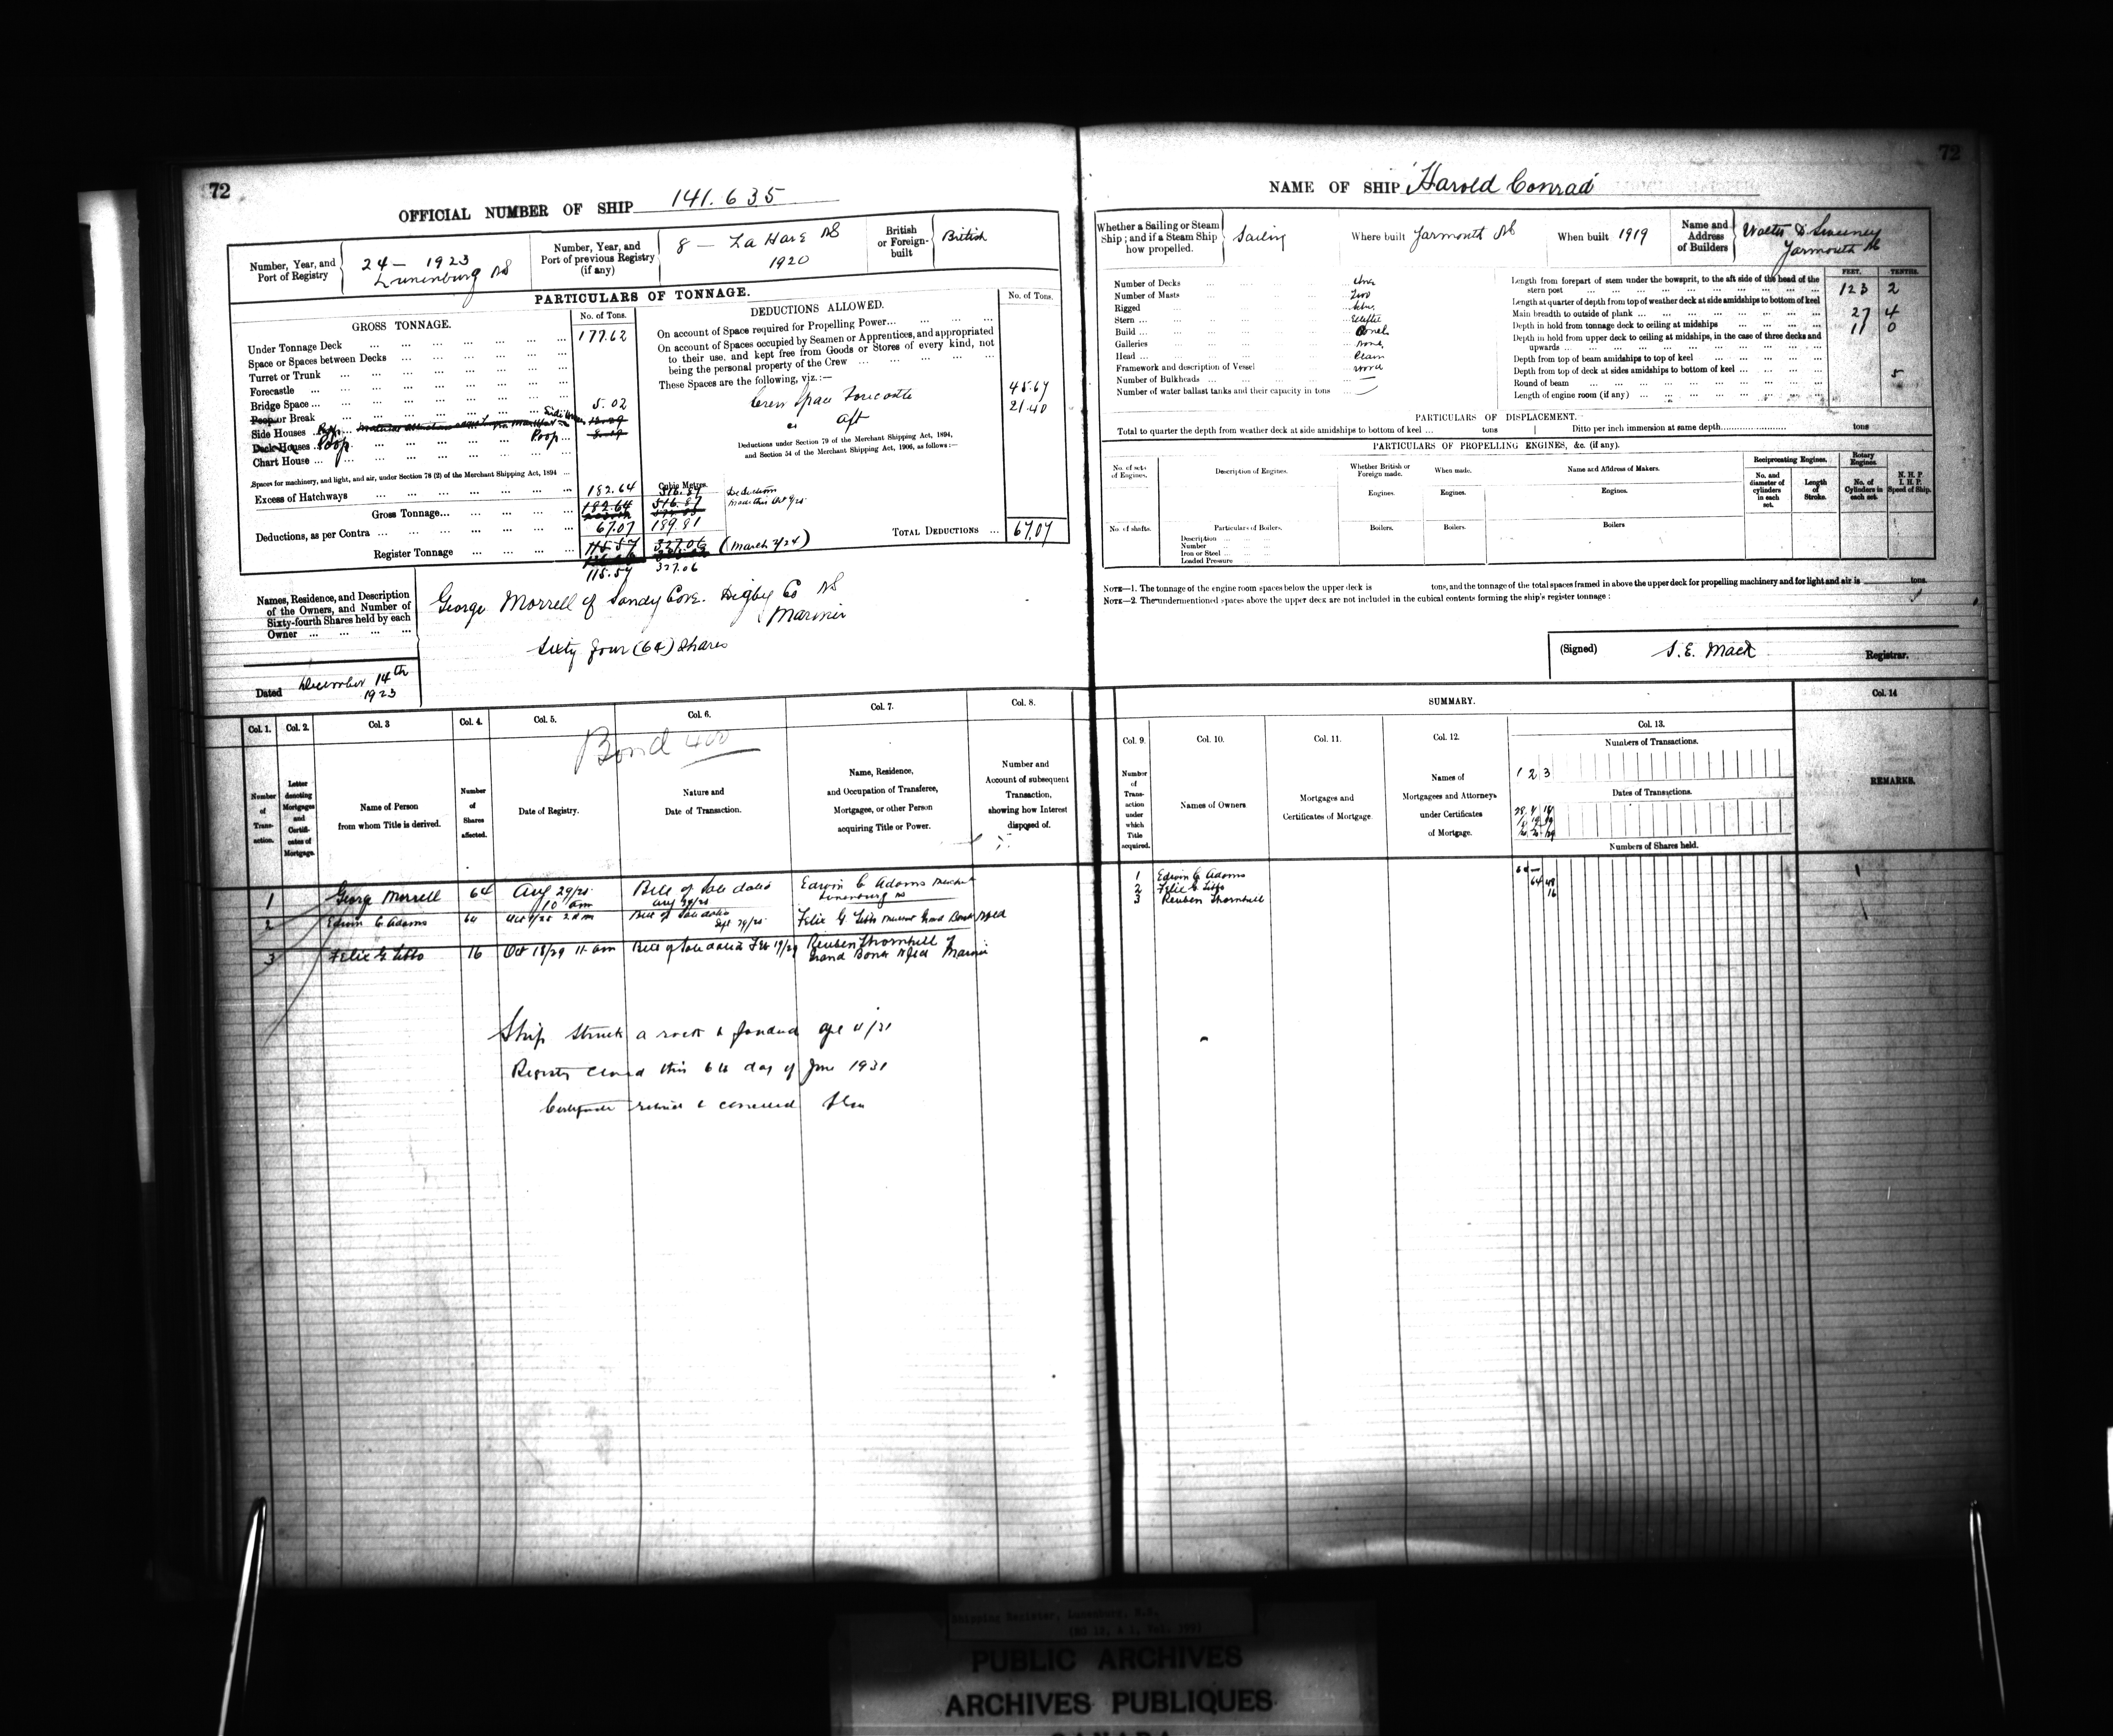 72
OFFICIAL NUMBER OF SHIP 141.635
Number, Year, and Port of Registry
24 — 1923
Lunenburg NS
Number, Year, and Port of previous Registry (if any)
8 — La Have NS
1920
British or Foreign-built
British
PARTICULARS OF TONNAGE.
GROSS TONNAGE.
No. of Tons.
Under Tonnage Deck 177.62
Space or Spaces between Decks
Turret or Trunk
Forecastle
Bridge Space
Poop or Break 5.02
Side Houses
Deck Houses Poop Poop
Chart House
Spaces for machinery, and light, and air, under Section 78 (2) of the Merchant Shipping Act, 1894
Excess of Hatchways
Cubic Metres.
182.64 516.87
Gross Tonnage 182.64 516.87
Deductions, as per Contra 67.07 189.81
Register Tonnage 115.57 327.06 (March 3/24)
115.57 327.06
DEDUCTIONS ALLOWED.
No. of Tons.
On account of Space required for Propelling Power
On account of Spaces occupied by Seamen or Apprentices, and appropriated
to their use, and kept free from Goods or Stores of every kind, not
being the personal property of the Crew
These Spaces are the following, viz.:—
Crew Space Forecastle 45.67
" aft 21.40
Deductions under Section 79 of the Merchant Shipping Act, 1894,
and Section 54 of the Merchant Shipping Act, 1906, as follows:—
TOTAL DEDUCTIONS 67.07
Names, Residence, and Description of the Owners, and Number of Sixty-fourth Shares held by each Owner
George Morrell of Sandy Cove. Digby Co NS
Mariner
Sixty four (64) Shares
Dated December 14th 1923
Bond 400
Col. 1. Col. 2. Col. 3 Col. 4. Col. 5. Col. 6. Col. 7. Col. 8.
Number of Transaction.
Letter denoting Mortgages and Certificates of Mortgage.
Name of Person from whom Title is derived.
Number of Shares affected.
Date of Registry.
Nature and Date of Transaction.
Name, Residence, and Occupation of Transferee, Mortgagee, or other Person acquiring Title or Power.
Number and Account of subsequent Transaction, showing how Interest disposed of.
1 George Morrell 64 Aug 29/25 10 am Bill of Sale dated Aug 29/25 Edwin C Adams Merchant Lunenburg NS
2 Edwin C Adams 64 Bill of Sale dated Sept 29/25 Felix G Tibbo Merchant Grand Bank Nfld
3 Felix G Tibbo 16 Oct 18/29 11 am Bill of Sale dated Feb 19/29 Reuben Thornhill of Grand Bank Nfld Mariner
Ship struck a rock & foundered Apl 11/31
Registry closed this 6th day of June 1931
Certificate & cancelled
72
NAME OF SHIP "Harold Conrad"
Whether a Sailing or Steam Ship; and if a Steam Ship how propelled.
Sailing
Where built Yarmouth NS
When built 1919
Name and Address of Builders
Walter D Sweeney
Yarmouth NS
Number of Decks One
Number of Masts Two
Rigged Schr.
Stern Elliptic
Build Carvel
Galleries None
Head
Framework and description of Vessel Wood
Number of Bulkheads —
Number of water ballast tanks and their capacity in tons —
FEET. TENTHS.
Length from forepart of stem under the bowsprit, to the aft side of the head of the stern post 123 2
Length at quarter of depth from top of weather deck at side amidships to bottom of keel
Main breadth to outside of plank 27 4
Depth in hold from tonnage deck to ceiling at midships 11 0
Depth in hold from upper deck to ceiling at midships, in the case of three decks and upwards
Depth from top of beam amidships to top of keel
Depth from top of deck at sides amidships to bottom of keel
Round of beam 5
Length of engine room (if any)
PARTICULARS OF DISPLACEMENT.
Total to quarter the depth from weather deck at side amidships to bottom of keel tons Ditto per inch immersion at same depth tons
PARTICULARS OF PROPELLING ENGINES, &c. (if any).
No. of sets of Engines.
Description of Engines.
Whether British or Foreign made.
When made.
Name and Address of Makers.
Reciprocating Engines.
Rotary Engines.
N. H. P. I. H. P. Speed of Ship.
Engines. Engines. Engines.
No. and diameter of cylinders in each set.
Length of Stroke.
No. of Cylinders in each set.
No. of shafts.
Particulars of Boilers. Boilers. Boilers. Boilers
Description
Number
Iron or Steel
Loaded Pressure
NOTE—1. The tonnage of the engine room spaces below the upper deck is tons, and the tonnage of the total spaces framed in above the upper deck for propelling machinery and for light and air is tons.
NOTE—2. The undermentioned spaces above the upper deck are not included in the cubical contents forming the ship's register tonnage:
(Signed) S. E. Mack Registrar.
SUMMARY.
Col. 14
Col. 9. Col. 10. Col. 11. Col. 12. Col. 13.
Number of Transaction under which Title acquired.
Names of Owners
Mortgages and Certificates of Mortgage.
Names of Mortgagees and Attorneys under Certificates of Mortgage.
Numbers of Transactions.
1 2 3
Dates of Transactions.
Numbers of Shares held.
REMARKS.
1 Edwin C Adams 64
2 Felix G Tibbo 64 48
3 Reuben Thornhill 16
Shipping Register, Lunenburg, N.S.
PUBLIC ARCHIVES
ARCHIVES PUBLIQUES
CANADA